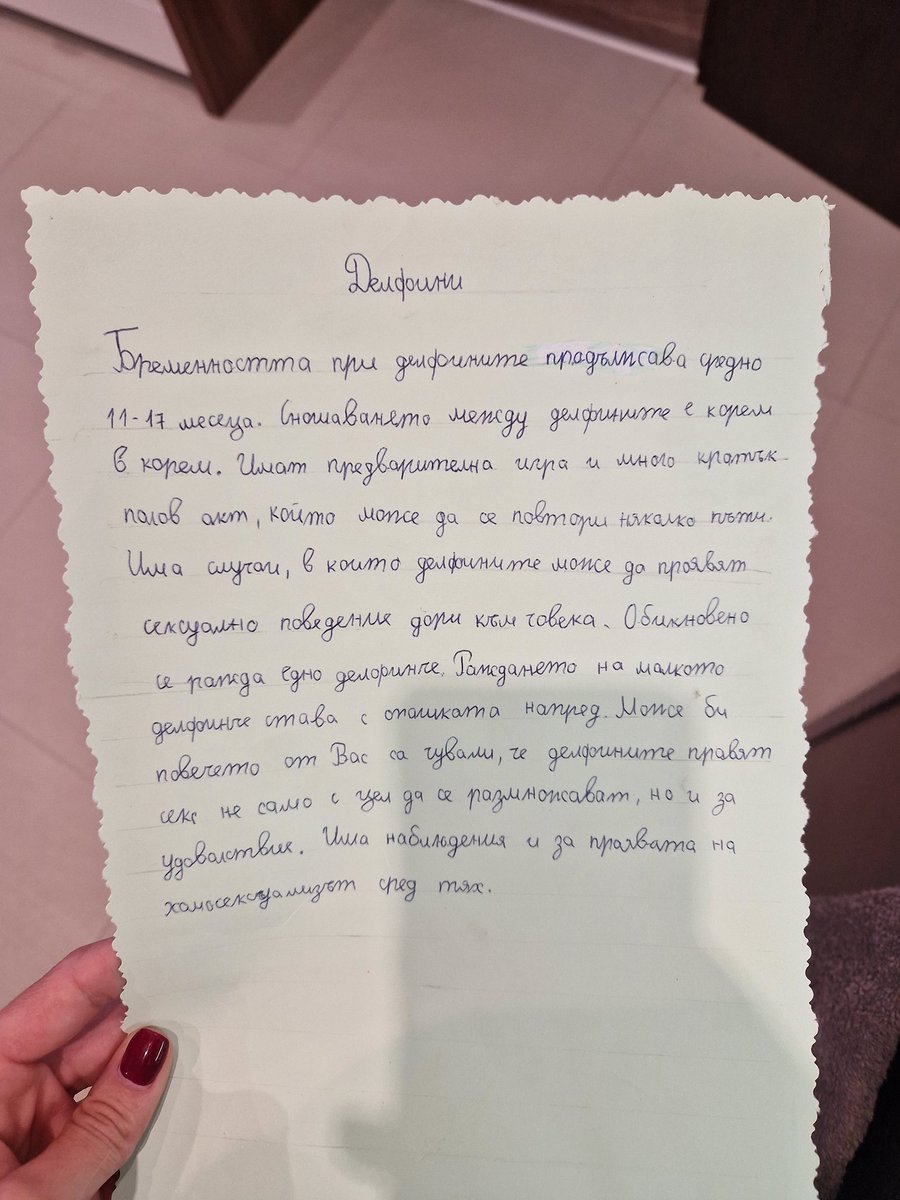 Делфини
Бременността при делфините продължава средно
11-17 месеца. Сношаването между делфините е корем
в корем. Имат предварителна игра и много кратък
полов акт, който може да се повтори няколко пъти.
Има случаи, в които делфините може да проявят
сексуално поведение дори към човека. Обикновено
се ражда едно делфинче. Раждането на малкото
делфинче става с опашката напред. Може би
повечето от Вас са чували, че делфините правят
секс не само с цел да се размножават, но и за
удоволствие. Има наблюдения и за проявата на
хомосексуализът сред тях.